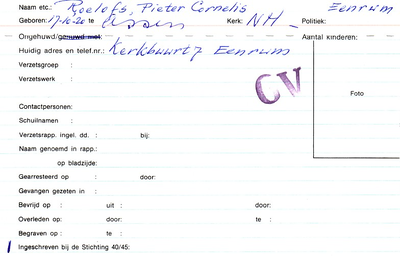 Naam etc.: Roelofs, Pieter Cornelis Eenrum
Geboren: 17-10-20 te Lissen Kerk: NH - Politiek:
Ongehuwd/gehuwd met: Aantal kinderen:
Huidig adres en telef.nr.: Kerkbuurt 7 Eenrum
Verzetsgroep :
Verzetswerk :
CV
Foto
Contactpersonen:
Schuilnaam :
Verzetsrapp. ingel. dd. : bij:
Naam genoemd in rapp.:
op bladzijde:
Gearresteerd op : door:
Gevangen gezeten in :
Bevrijd op : uit : door:
Overleden op: door: te :
Begraven op : te :
Ingeschreven bij de Stichting 40/45: